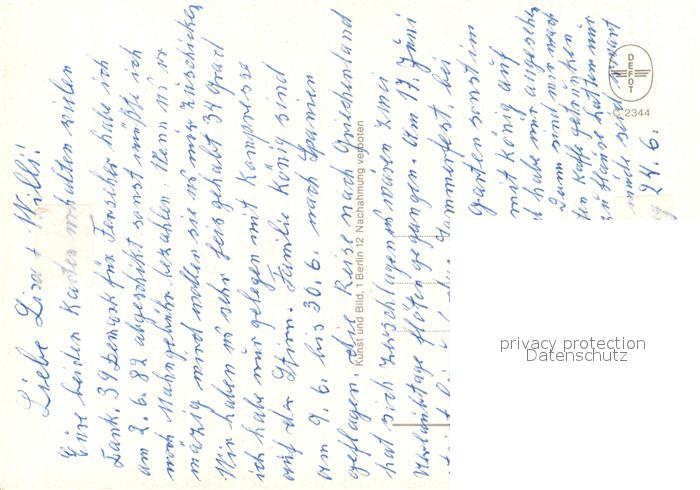 Liebe Lisa + Willi!
Eure beiden Karten erhalten vielen
Dank. 39 Demark für Fernseher habe ich
am 2.6.82 abgeschikt sonst müßte ich
noch Mahngebühr bezahlen. Wenn es
mäzig wird wollen sie es mir zuschicken
Wir haben es sehr heis gehabt 34 grad
ich habe nur gelegen mit Kompresse
auf der Stirn. Familie König sind
am 9.6. bis 30.6. nach Spanien
geflogen. die Reise nach Griechenland
hat sich zerschlagen es waren zwei
Urlaubstage flöten gegangen. Am 17. Juni
Sammerfest, bei
Garten sonst im
mit König auf
habe mir angesehen
Dann sind wir nach
Kaffe getrunken
zu Hause hatten wir
24.6.
Kunst und Bild, 1 Berlin 12 Nachahmung verboten
DEFOT
C 2344
privacy protection
Datenschutz